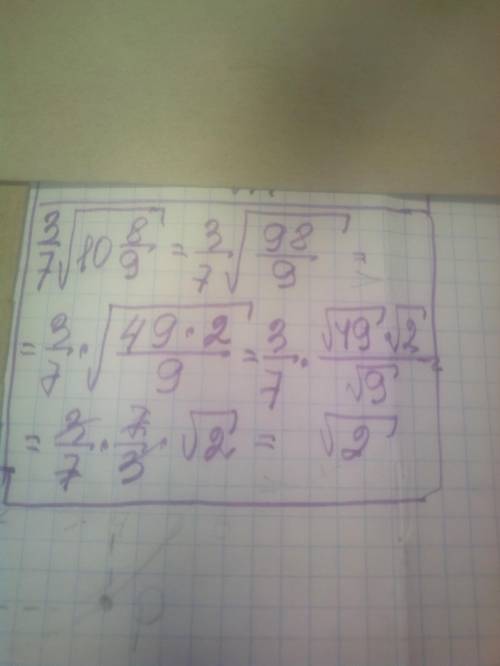 3/7 √(10 8/9) = 3/7 √(98/9) =
= 3/7 · √(49·2/9) = 3/7 · √49 √2/√9
= 3/7 · 7/3 · √2 = √2